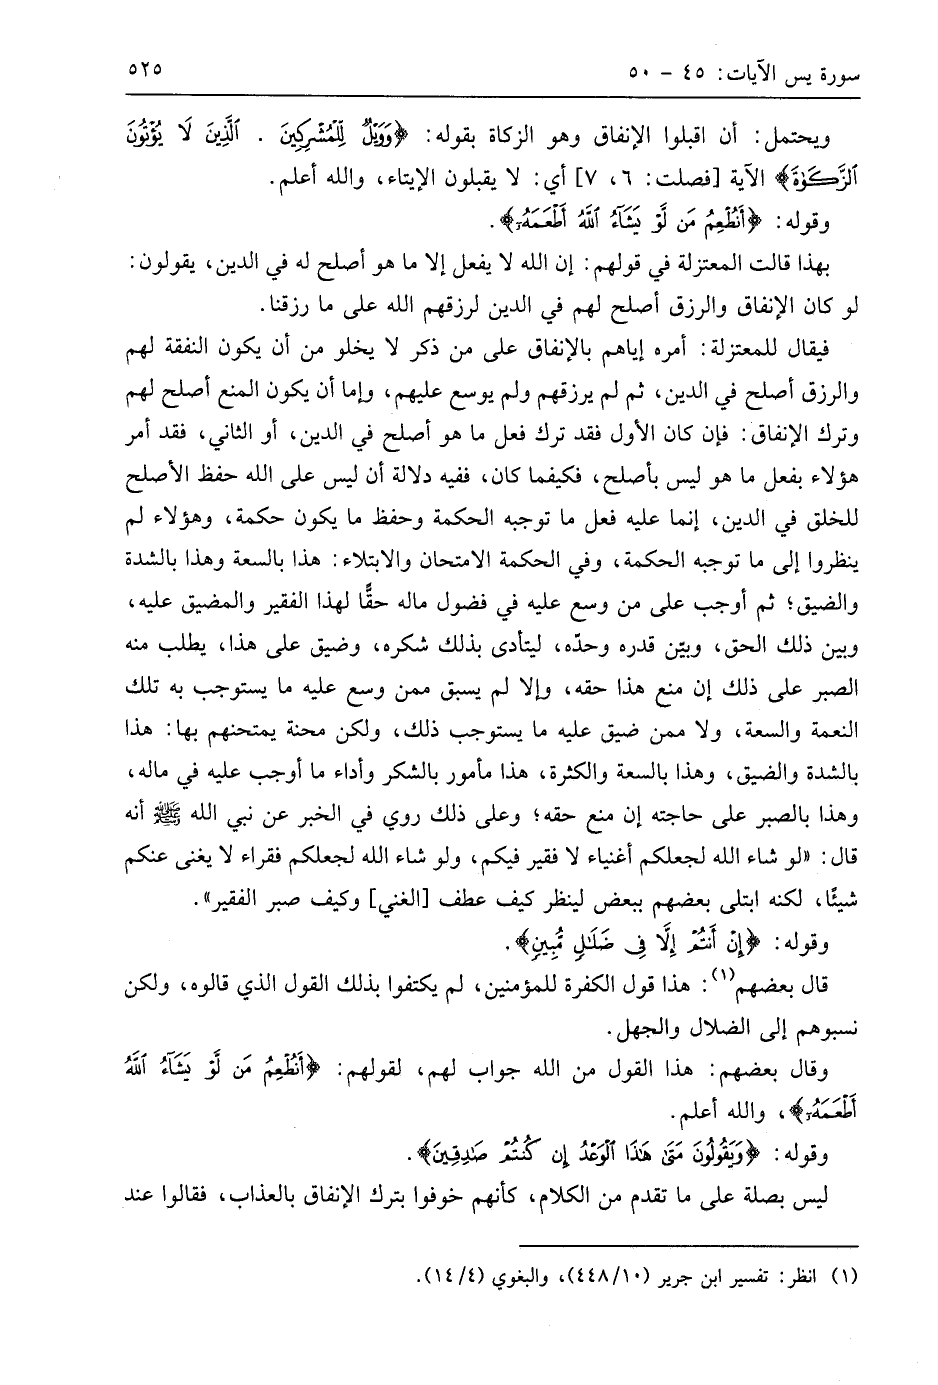 سورة يس الآيات: ٤٥ - ٥٠
٥٢٥
ويحتمل: أن اقبلوا الإنفاق وهو الزكاة بقوله: ﴿وَوَيْلٌ لِّلْمُشْرِكِينَ . ٱلَّذِينَ لَا يُؤْتُونَ
ٱلزَّكَوٰةَ﴾ الآية [فصلت: ٦، ٧] أي: لا يقبلون الإيتاء، والله أعلم.
وقوله: ﴿أَنُطْعِمُ مَن لَّوْ يَشَآءُ ٱللَّهُ أَطْعَمَهُۥ﴾.
بهذا قالت المعتزلة في قولهم: إن الله لا يفعل إلا ما هو أصلح له في الدين، يقولون:
لو كان الإنفاق والرزق أصلح لهم في الدين لرزقهم الله على ما رزقنا.
فيقال للمعتزلة: أمره إياهم بالإنفاق على من ذكر لا يخلو من أن يكون النفقة لهم
والرزق أصلح في الدين، ثم لم يرزقهم ولم يوسع عليهم، وإما أن يكون المنع أصلح لهم
وترك الإنفاق: فإن كان الأول فقد ترك فعل ما هو أصلح في الدين، أو الثاني، فقد أمر
هؤلاء بفعل ما هو ليس بأصلح، فكيفما كان، ففيه دلالة أن ليس على الله حفظ الأصلح
للخلق في الدين، إنما عليه فعل ما توجبه الحكمة وحفظ ما يكون حكمة، وهؤلاء لم
ينظروا إلى ما توجبه الحكمة، وفي الحكمة الامتحان والابتلاء: هذا بالسعة وهذا بالشدة
والضيق؛ ثم أوجب على من وسع عليه في فضول ماله حقًّا لهذا الفقير والمضيق عليه،
وبين ذلك الحق، وبيّن قدره وحدّه، ليتأدى بذلك شكره، وضيق على هذا، يطلب منه
الصبر على ذلك إن منع هذا حقه، وإلا لم يسبق ممن وسع عليه ما يستوجب به تلك
النعمة والسعة، ولا ممن ضيق عليه ما يستوجب ذلك، ولكن محنة يمتحنهم بها: هذا
بالشدة والضيق، وهذا بالسعة والكثرة، هذا مأمور بالشكر وأداء ما أوجب عليه في ماله،
وهذا بالصبر على حاجته إن منع حقه؛ وعلى ذلك روي في الخبر عن نبي الله ﷺ أنه
قال: «لو شاء الله لجعلكم أغنياء لا فقير فيكم، ولو شاء الله لجعلكم فقراء لا يغنى عنكم
شيئًا، لكنه ابتلى بعضهم ببعض لينظر كيف عطف [الغني] وكيف صبر الفقير».
وقوله: ﴿إِنْ أَنتُمْ إِلَّا فِى ضَلَٰلٍ مُّبِينٍ﴾.
قال بعضهم(١): هذا قول الكفرة للمؤمنين، لم يكتفوا بذلك القول الذي قالوه، ولكن
نسبوهم إلى الضلال والجهل.
وقال بعضهم: هذا القول من الله جواب لهم، لقولهم: ﴿أَنُطْعِمُ مَن لَّوْ يَشَآءُ ٱللَّهُ
أَطْعَمَهُۥ﴾، والله أعلم.
وقوله: ﴿وَيَقُولُونَ مَتَىٰ هَٰذَا ٱلْوَعْدُ إِن كُنتُمْ صَٰدِقِينَ﴾.
ليس بصلة على ما تقدم من الكلام، كأنهم خوفوا بترك الإنفاق بالعذاب، فقالوا عند
(١) انظر: تفسير ابن جرير (١٠/٤٤٨)، والبغوي (٤/١٤).